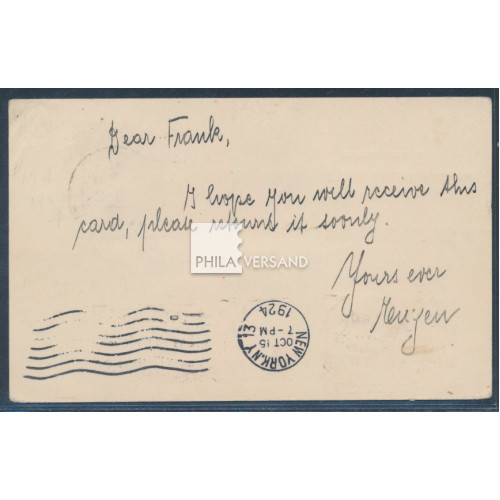 Dear Frank,
I hope you will receive this
card, please return it soonly.
Yours ever
Eugen
PHILA VERSAND
NEW YORK, N.Y. 13
OCT 15
7-PM
1924